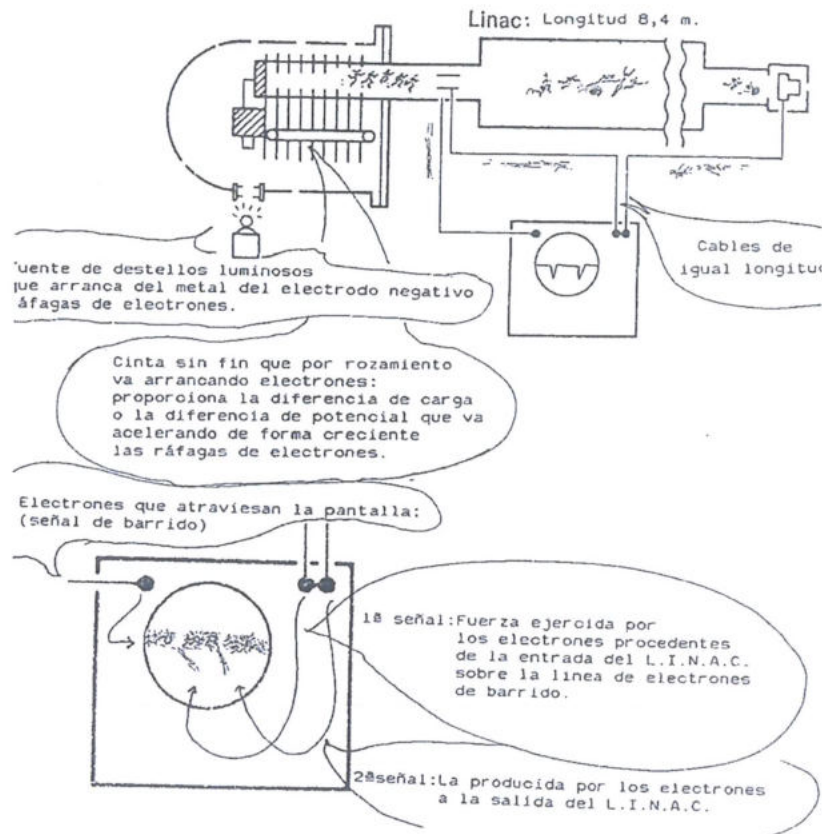 Linac: Longitud 8,4 m.
Cables de
igual longitud
uente de destellos luminosos
que arranca del metal del electrodo negativo
áfagas de electrones.
Cinta sin fin que por rozamiento
va arrancando electrones:
proporciona la diferencia de carga
o la diferencia de potencial que va
acelerando de forma creciente
las ráfagas de electrones.
Electrones que atraviesan la pantalla:
(señal de barrido)
1ª señal:Fuerza ejercida por
los electrones procedentes
de la entrada del L.I.N.A.C.
sobre la línea de electrones
de barrido.
2ªseñal:La producida por los electrones
a la salida del L.I.N.A.C.